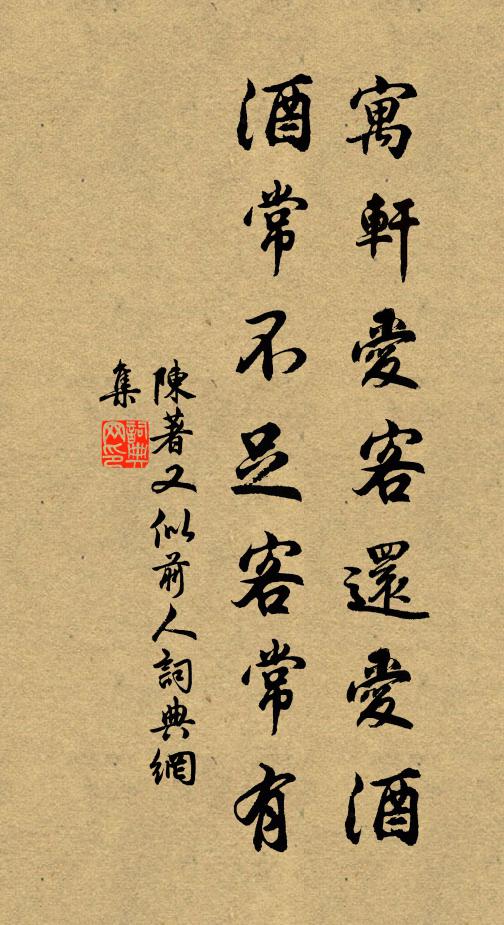 寓軒愛客還愛酒
酒常不足客常有
陳著又似前人詞典網
集
詞典
网印